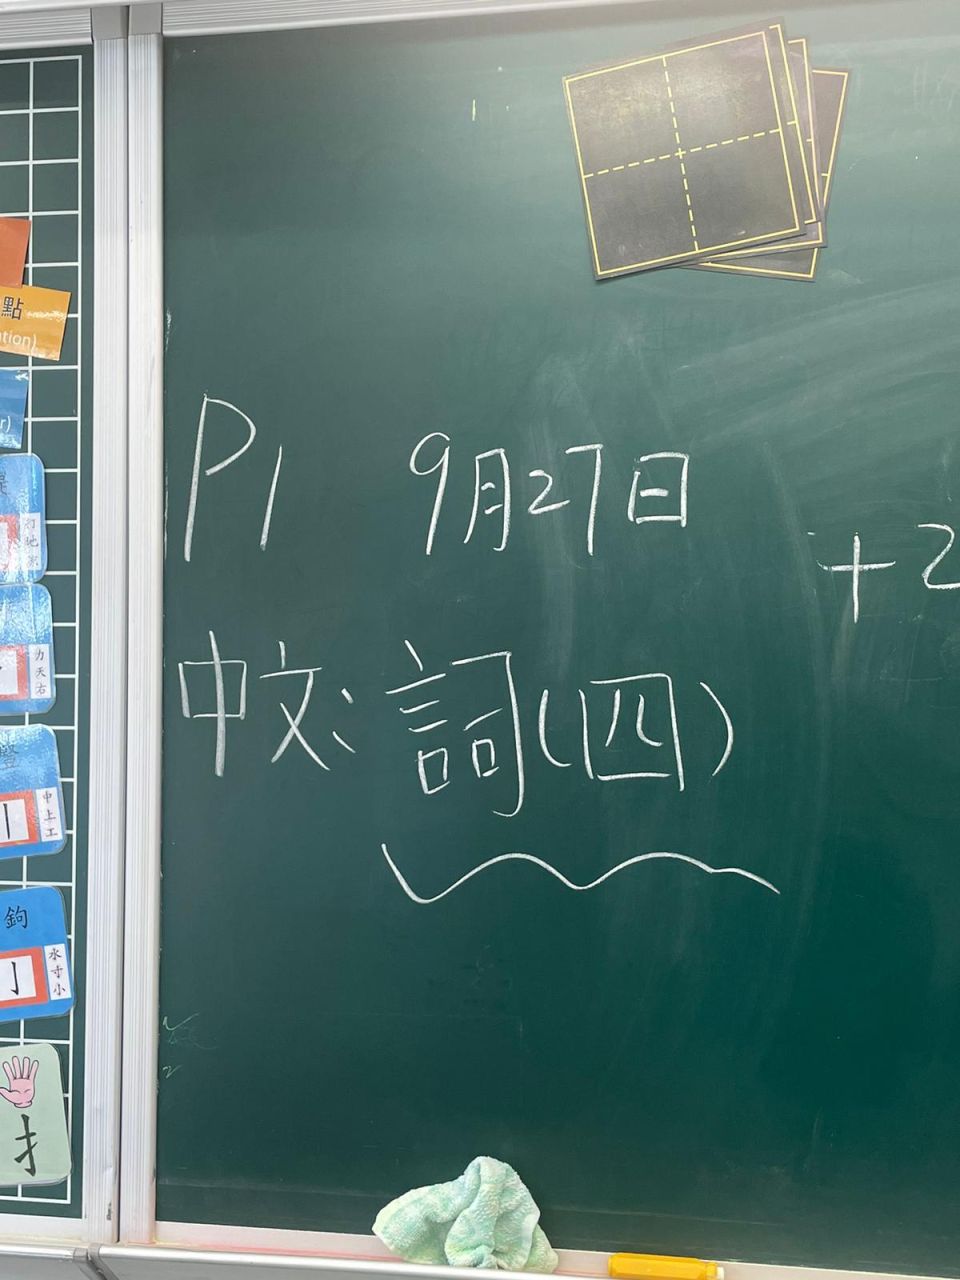 P1 9月27日
+2
中文: 詞(四)
點
tion)
r)
提
打
地
力
天
右
豎
中
上
工
鉤
水
寸
小
扌